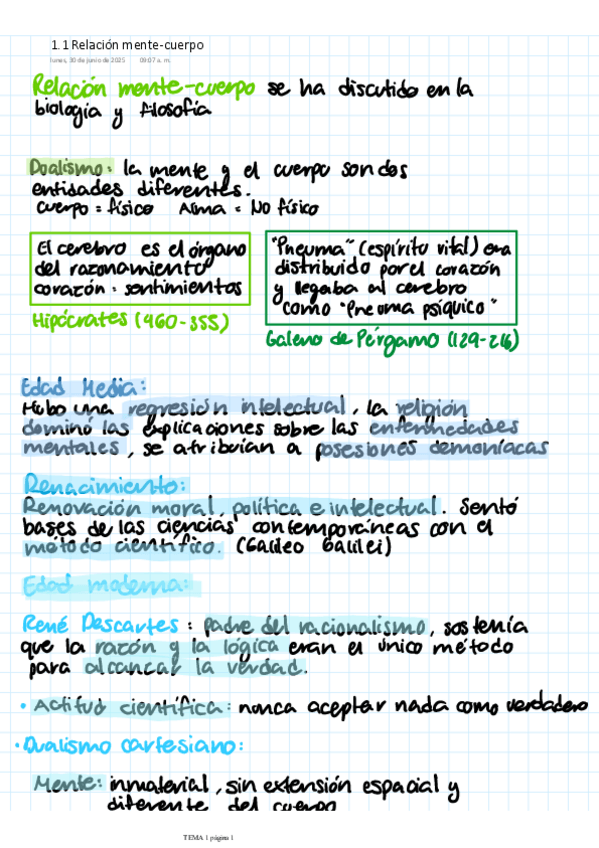 1.1 Relación mente-cuerpo
lunes, 30 de junio de 2025 09:07 a. m.
Relación mente-cuerpo se ha discutido en la
biología y filosofía
Dualismo: la mente y el cuerpo son dos
entidades diferentes.
Cuerpo = físico Alma = No físico
El cerebro es el órgano
del razonamiento
corazón: sentimientos
Hipócrates (460-355)
"Pneuma" (espíritu vital) era
distribuido por el corazón
y llegaba al cerebro
como "Pneuma psíquico"
Galeno de Pérgamo (129-216)
Edad Media:
Hubo una regresión intelectual, la religión
dominó las explicaciones sobre las enfermedades
mentales, se atribuían a posesiones demoníacas
Renacimiento:
Renovación moral, política e intelectual. Sentó
bases de las ciencias contemporáneas con el
método científico. (Galileo Galilei)
Edad moderna:
René Descartes: padre del racionalismo, sostenía
que la razón y la lógica eran el único método
para alcanzar la verdad.
• Actitud científica: nunca aceptar nada como verdadero
• Dualismo cartesiano:
Mente: inmaterial, sin extensión espacial y
diferente del cuerpo
TEMA 1 página 1